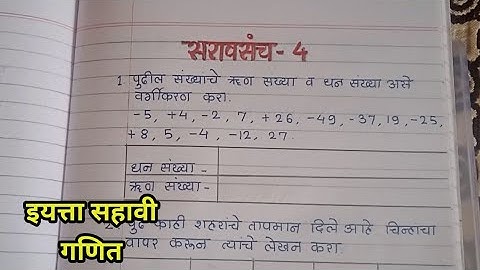 सरावसंच - 4
1. पुढील संख्याचे ऋण संख्या व धन संख्या असे
वर्गीकरण करा.
-5, +4, -2, 7, +26, -49, -37, 19, -25,
+8, 5, -4, -12, 27.
धन संख्या -
ऋण संख्या -
काही शहरांचे तापमान दिले आहे चिन्हांचा
वापर करून त्याचे लेखन करा.
इयत्ता सहावी
गणित